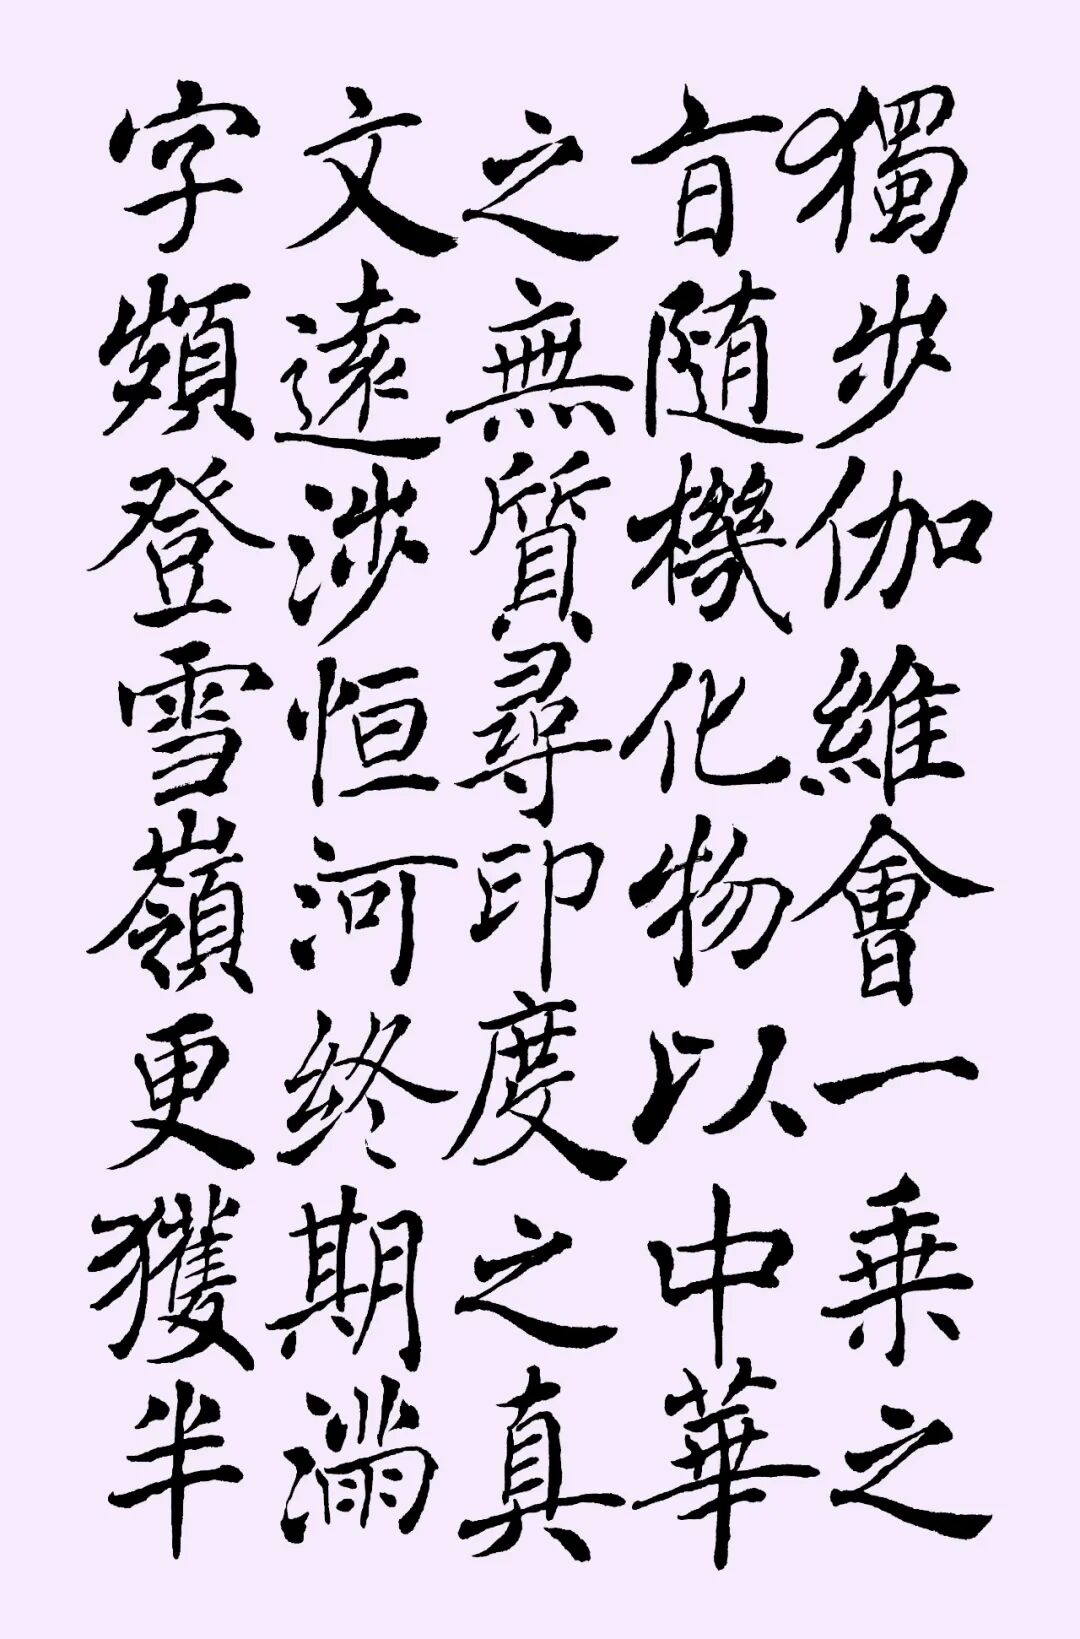 獨步伽維會一乗之
旨随機化物以中華
之無質尋印度之真
文遠涉恒河終期滿
字頻登雪嶺更獲半